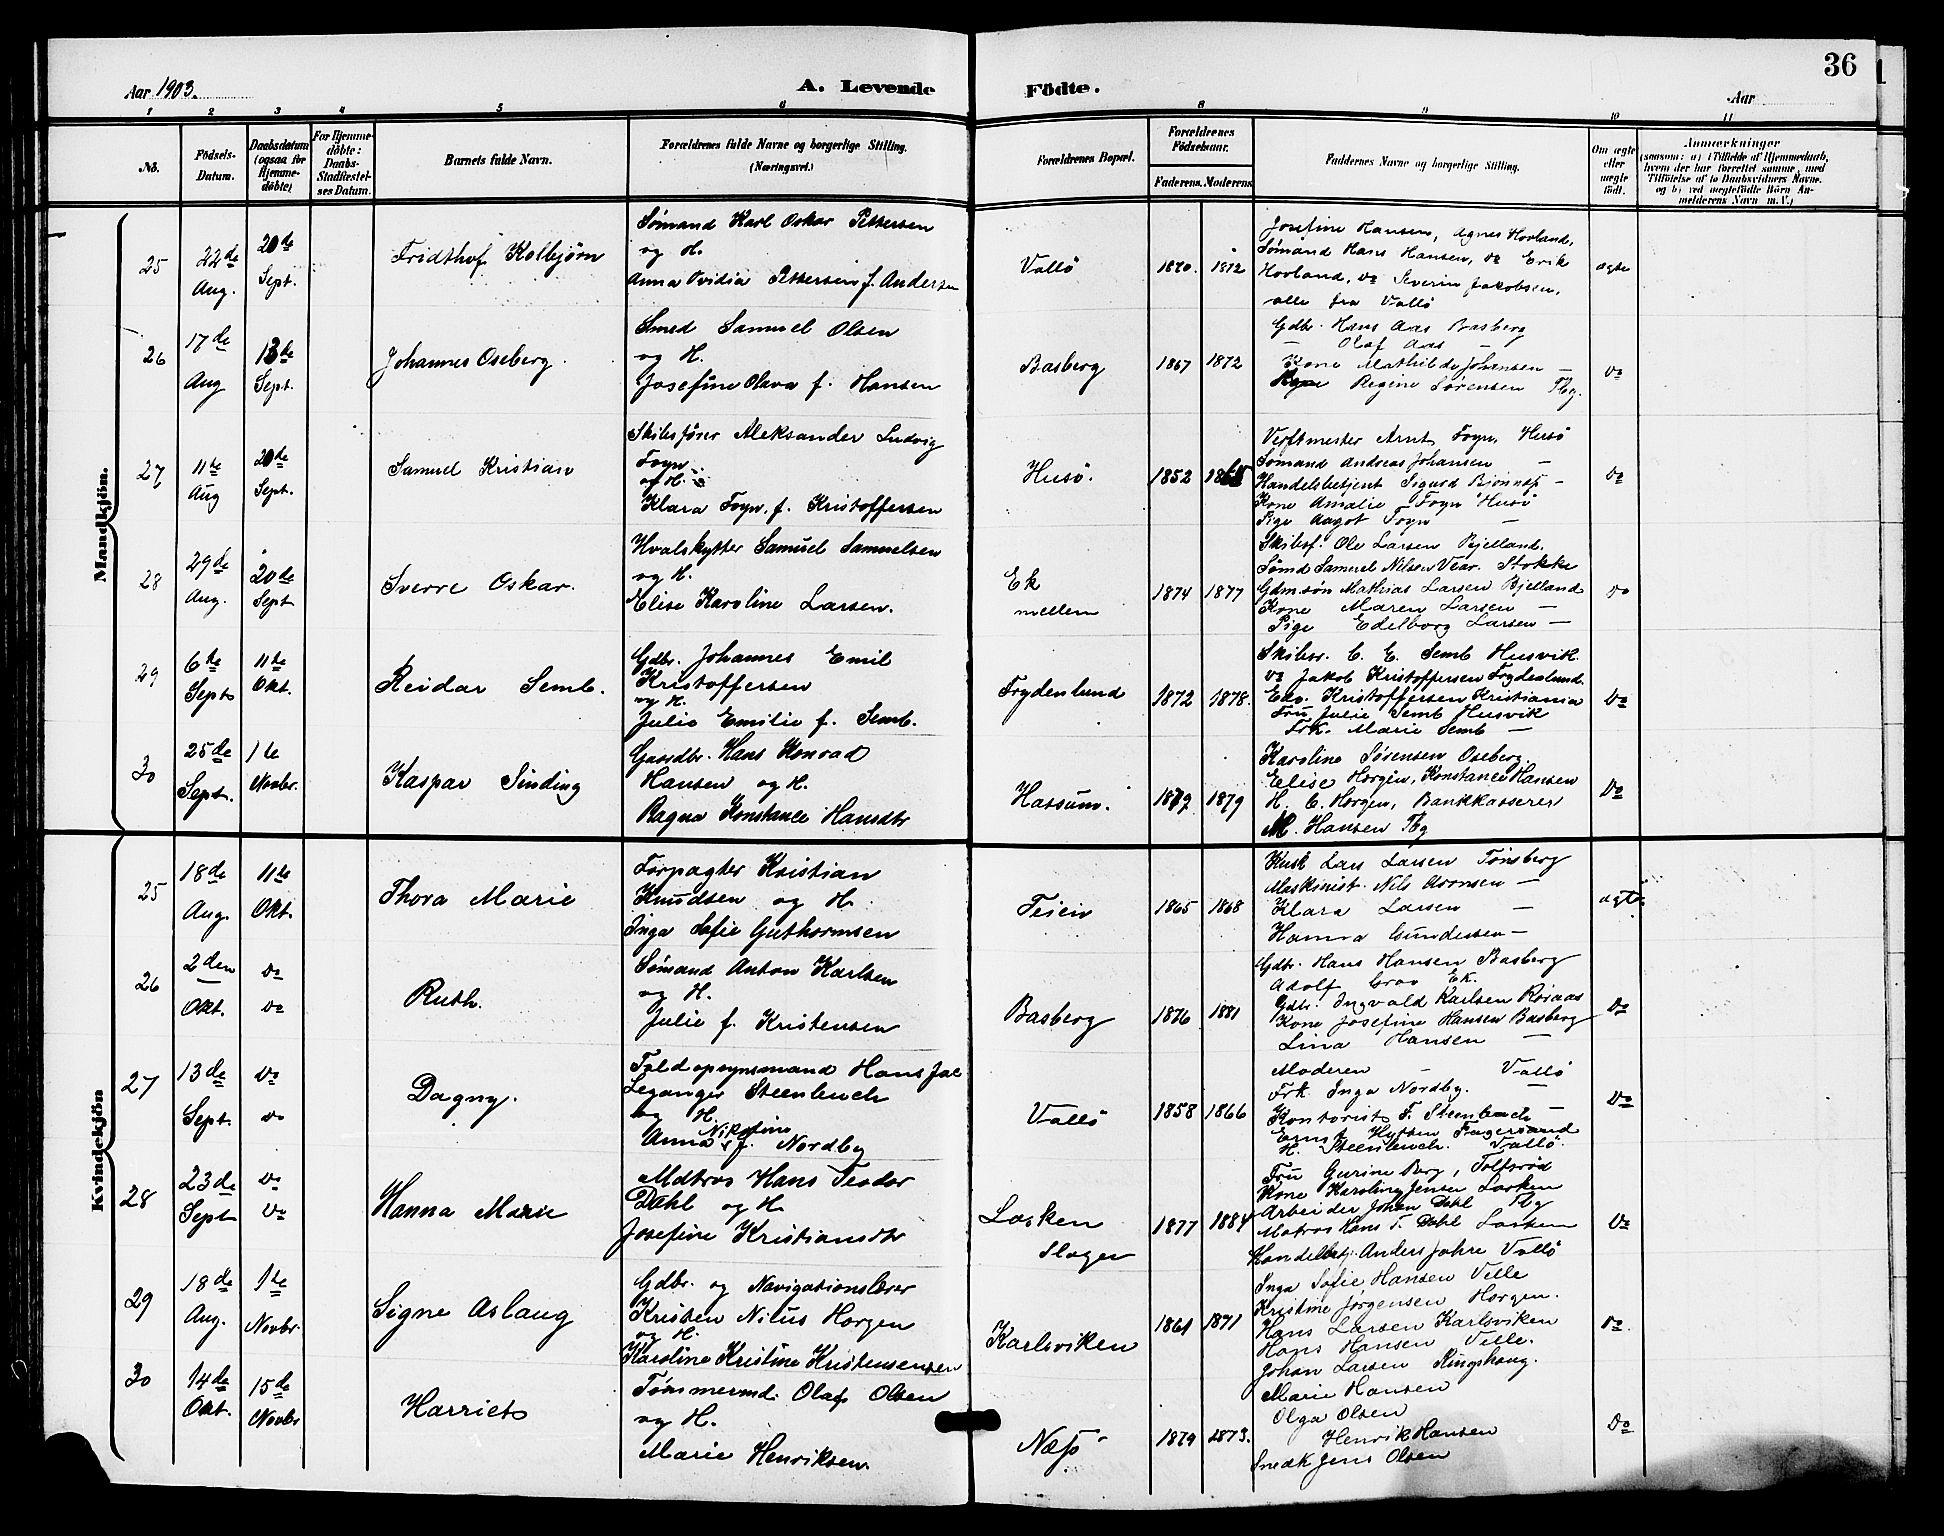 36
Aar 1903.
A. Levende
Födte.
Aar
1 2 3 4 5 6 8 9 10 11
No.
Födsels-Datum.
Daabsdatum (ogsaa for Hjemmedöbte)
For Hjemmedöbte: Daabs-Stadfæstelses Datum.
Barnets fulde Navn.
Forældrenes fulde Navne og borgerlige Stilling.
(Næringsvei.)
Forældrenes Bopæl.
Forældrenes Födselsaar.
Faderens. Moderens.
Faddernes Navne og borgerlige Stilling.
Om ægte eller uægte födt.
Anmærkninger
(saasom: a) i Tilfælde af Hjemmedaab,
hvem der har forrettet samme, med
Tilföielse af to Daabsvidners Navne,
og b) ved uægtefödte Börn Anmelderens Navn m.V.)
Mandkjön.
25
22de Aug.
20de Sept.
Fridthof Kolbjørn
Sømand Karl Oskar Pettersen
og H.
Anna Ovidia Pettersen f. Andersen
Vallö
1870. 1872
Josefine Hansen, Agnes Hovland,
Sømand Hans Hansen, do Erik
Hovland, do Severin Jakobsen,
alle fra Vallö
ægte
26
17de Aug
13de Sept.
Johannes Oseberg.
Smed Samuel Olsen
og H.
Josefine Olava f. Hansen
Basberg
1867 1872
Gdbr. Hans Aas Basberg
— Olaf Aas —
Kone Mathilde Johansen —
Regine Sørensen Tbg.
do
27
11te Aug
20de Sept.
Samuel Kristian
Skibsfører Aleksander Ludvig
Foyn
og H.
Klara Foyn, f. Kristoffersen
Husö.
1852
Verftmester Arnt Foyn, Husö
Sømand Andreas Johansen —
Handelsbetjent Sigurd —
Kone Amalie Foyn Husö
Pige Aagot Foyn —
do
28
29de Aug.
20de Sept
Sverre Oskar.
Hvalskytter Samuel Samuelsen
og H.
Elise Karoline Larsen.
Ek
mellem
1874 1877
Skibsf. Ole Larsen Bjelland.
Sømd Samuel Nilsen Vear. Stokke
Gdm.søn Mathias Larsen Bjelland
Kone Maren Larsen —
Pige Edelborg Larsen —
do
29
6te Sept
11te Okt.
Reidar Semb.
Gdbr. Johannes Emil
Kristoffersen
og H.
Julie Emilie f. Semb.
Frydenlund
1872 1878.
Skibsr. C. E. Semb Husvik.
do Jakob Kristoffersen Frydenlund
Edv. Kristoffersen Kristiania
Fru Julie Semb Husvik
Frk. Marie Semb —
do
30
25de Sept.
1te Novbr.
Kaspar Sinding
Gaardbr. Hans Konrad
Hansen og H.
Ragna Konstance Hansdtr
Hassum.
1872 1879
Karoline Sørensen Oseberg.
Elise Horgen, Konstance Hansen
H. C. Horgen, Bankkasserer
M. Hansen Tbg
do
Kvindekjön
25
18de Aug.
11te Okt.
Thora Marie
Forpagter Kristian
Knudsen og H.
Inga Sofie Guthormsen
Teien
1865 1868
Kusk Lars Larsen Tønsberg
Maskinist Nils Aronsen —
Klara Larsen —
Hanna Gundersen —
ægte
26
2den Okt.
do do
Ruth.
Sømand Anton Karlsen
og H.
Julie f. Kristensen
Basberg
1876 1881
Gdbr. Hans Hansen Basberg
Adolf Grav Ek.
Gdbr. Ingvald Karlsen Røraas
Kone Josefine Hansen Basberg
Lina Hansen —
do
27
13de Sept.
do do
Dagny.
Toldopsynsmand Hans Jac
Leganger Steenbuch
og H.
Anna Nikoline f. Nordby
Vallö
1858 1866
Moderen — Vallö
Frk. Inga Nordby. —
Kontorist F. Steenbuch —
Ernst Hytten Fagersand
H. Steenbuch. Vallö
do
28
23de Sept
do do
Hanna Marie
Matros Hans Teodor
Dahl og H.
Josefine Kristiansdtr
Lasken
Slagen
1877 1884
Fru Gurine Berg, Tolfsrød
Kone Karoline Jensen Lasken
Arbeider Johan Dahl Tbg
Matros Hans T. Dahl Lasken
Handelbetj. Anders Jahre Vallö
do
29
18de Aug.
1te Novbr.
Signe Aslaug
Gdbr. og Navigationslærer
Kristen Nilus Horgen
og H.
Karoline Kristine Kristensensen
Karlsviken
1861 1871
Inga Sofie Hansen Velle
Kristine Jørgensen Horgen.
Hans Larsen Karlsviken
Hans Hansen Velle.
Johan Larsen Ringshaug.
do.
30
14de Okt.
15de Novbr
Harriet
Tømmermd. Olaf Olsen
og H.
Marie Henriksen.
Næsö
1879 1873.
Marie Hansen
Olga Olsen
Henrik Hansen
Snedk Jens Olsen
do